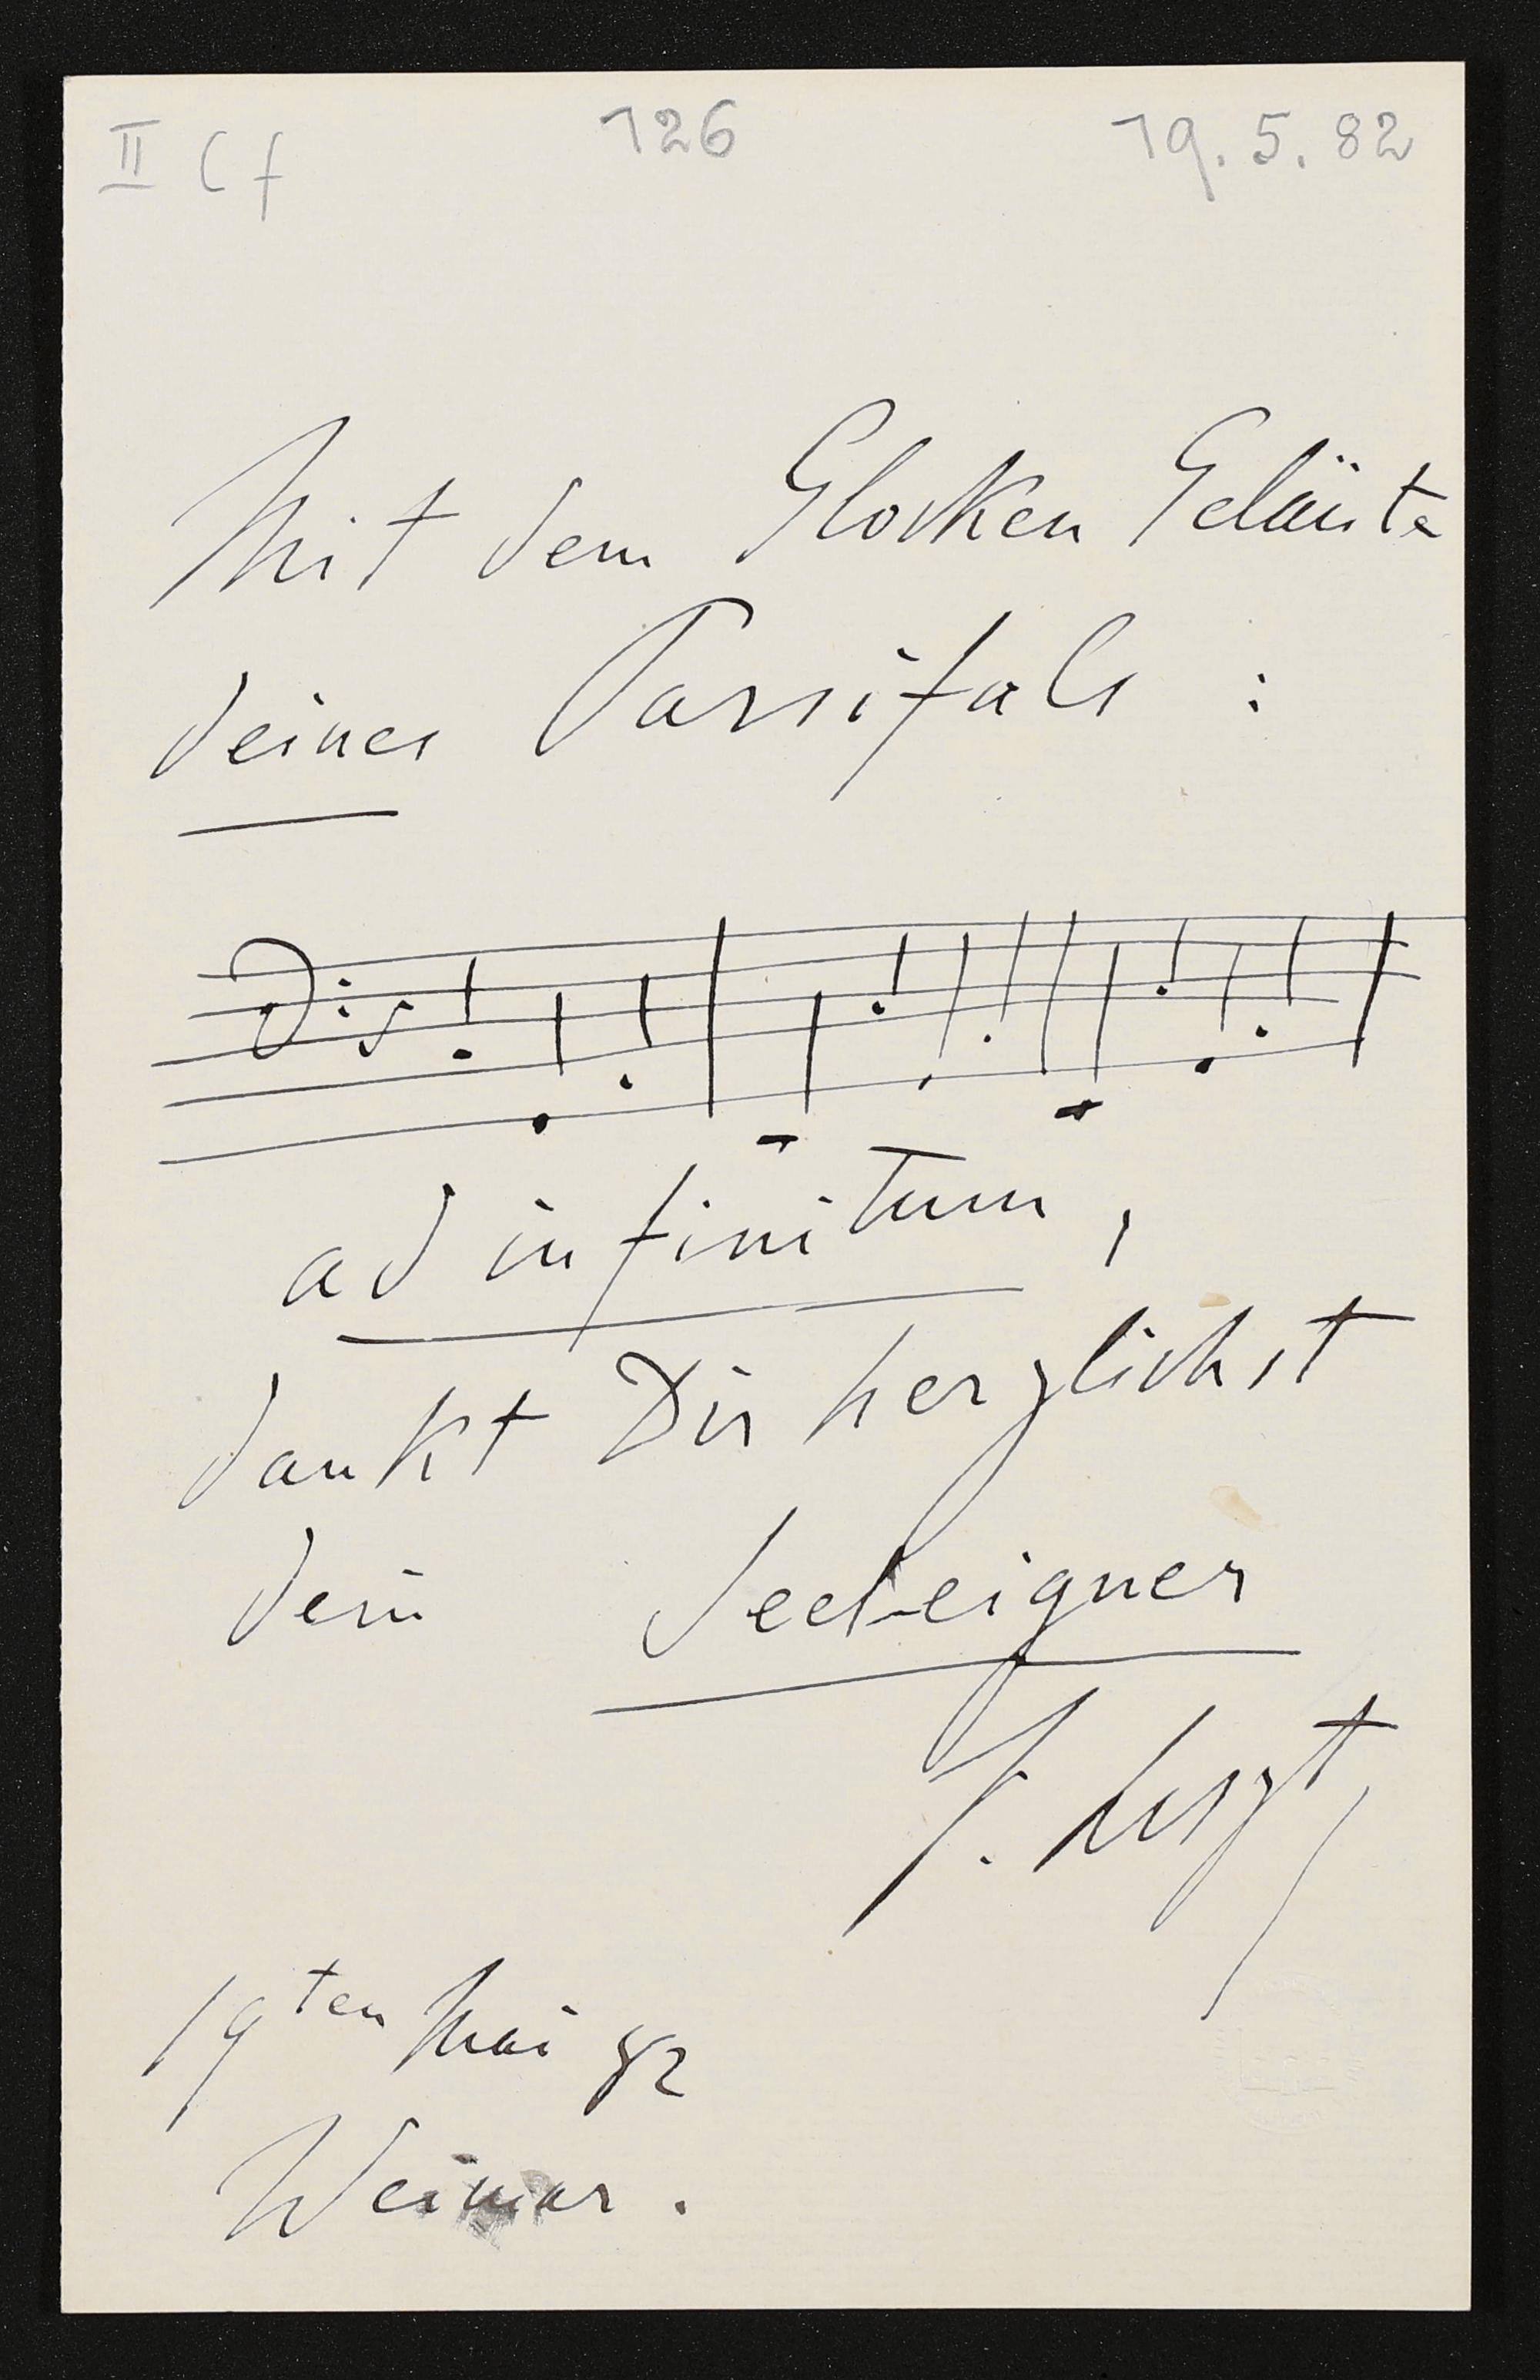 II Cf 126 19.5.82
Mit dem Glocken Geläute
deines Parsifals :
ad infinitum,
dankt Dir herzlichst
dein Seeleigner
F. Liszt,
19ten Mai 82
Weimar.